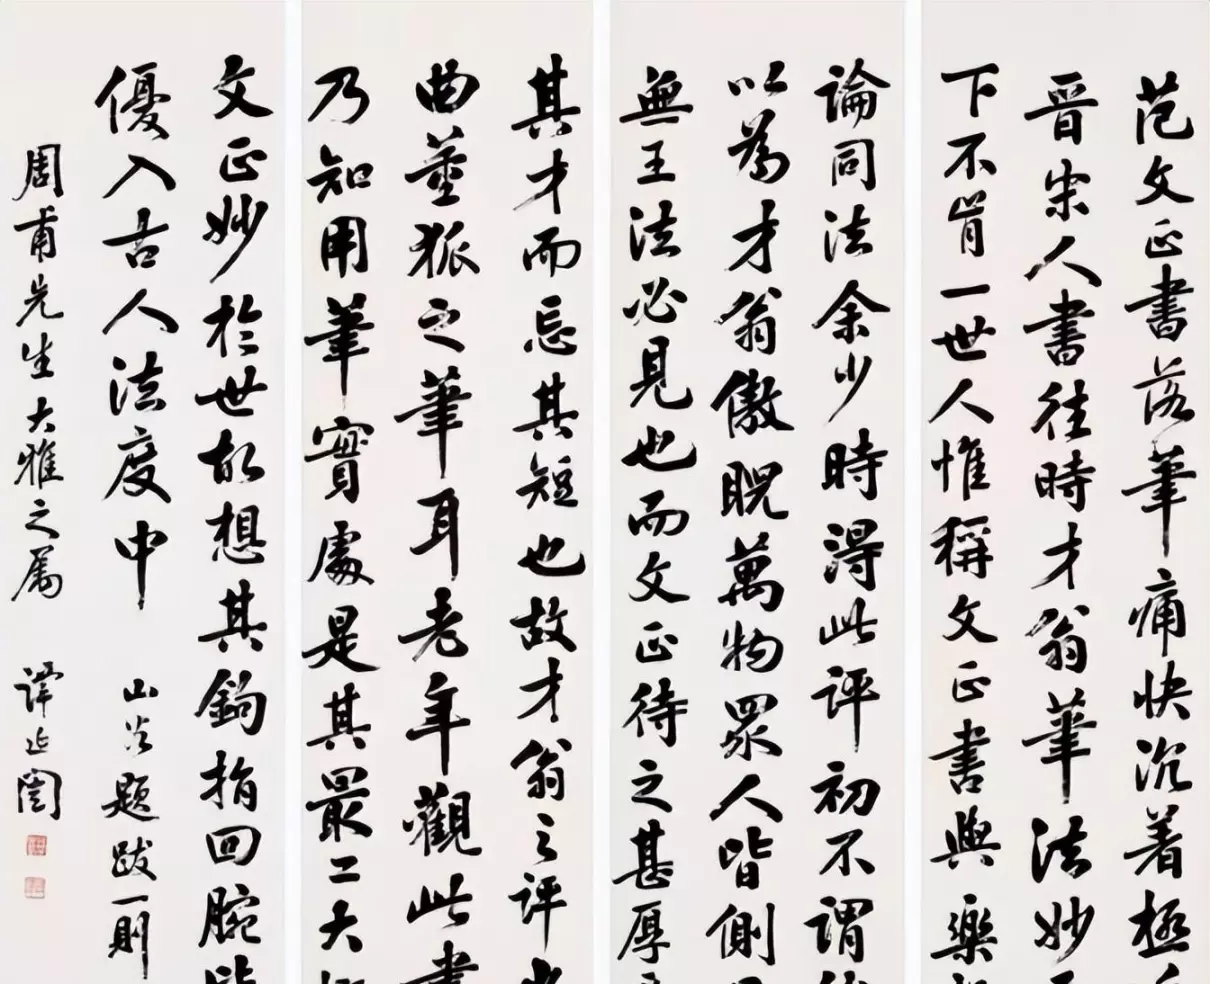 范文正書落筆痛快沉着極
晉宋人書往時才翁筆法妙
下不肯一世人惟稱文正書與樂
論同法余少時得此評初不謂
以為才翁傲睨萬物眾人皆側
無王法必見也而文正待之甚厚
其才而忘其短也故才翁之評
曲董狐之筆耳老年觀此書
乃知用筆實處是其最工大
文正妙於世故想其鈎指回腕皆
優入古人法度中 山谷題跋一則
周甫先生大雅之属 譚延闓